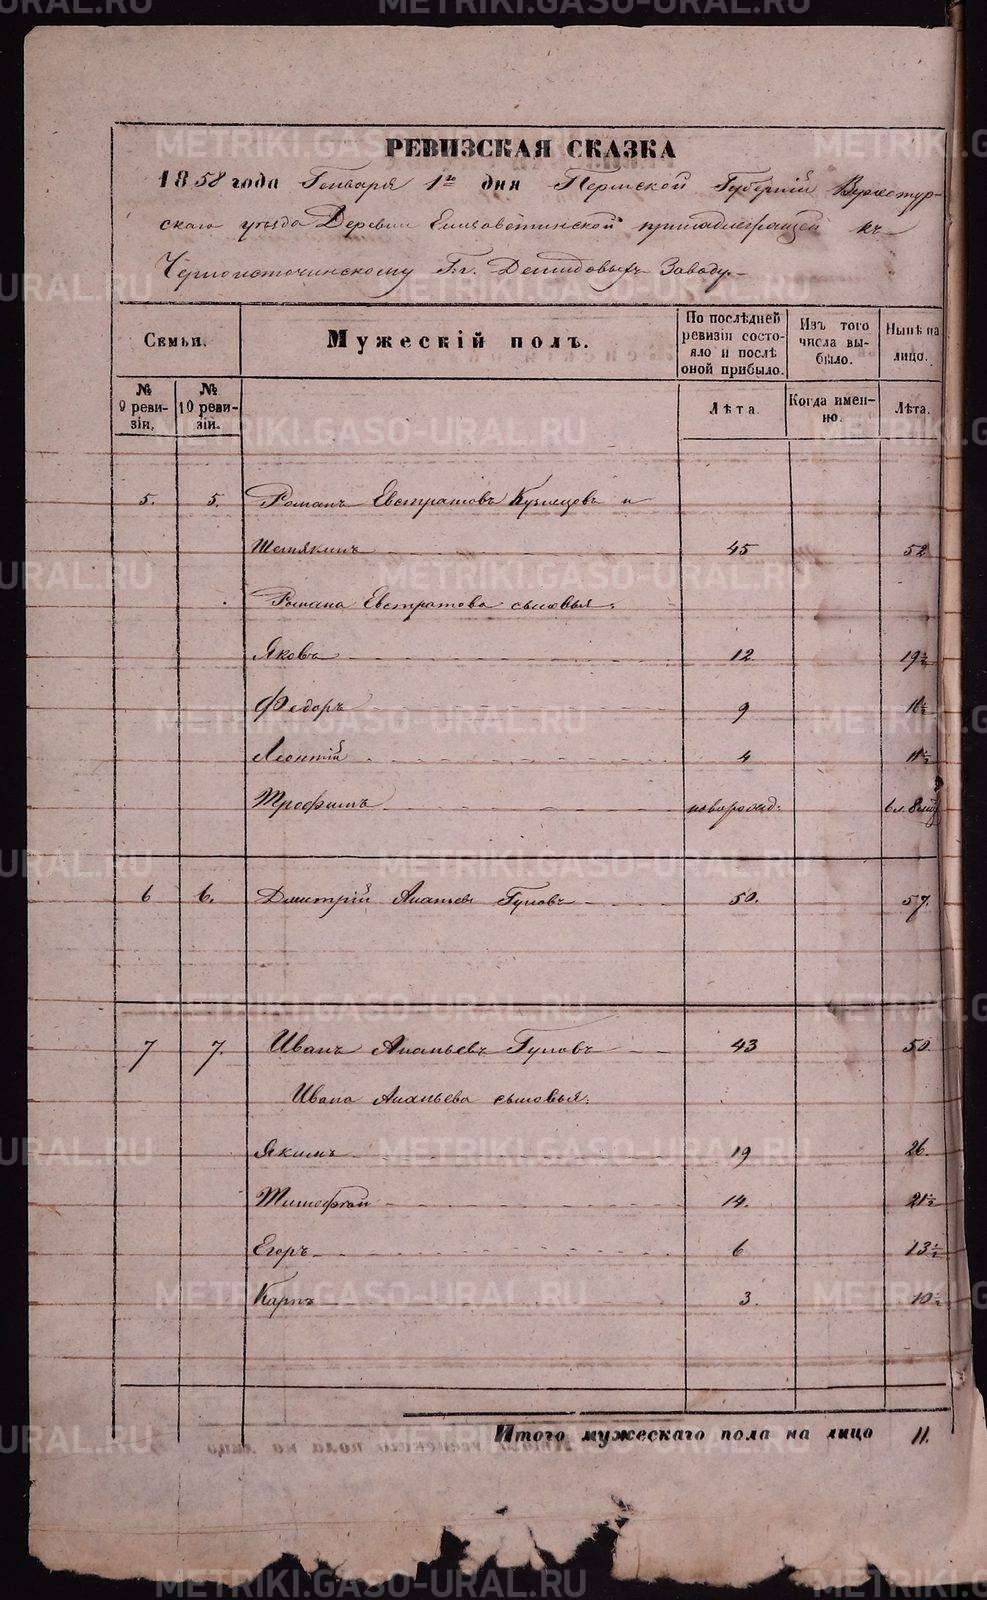 РЕВИЗСКАЯ СКАЗКА
1858 года Генваря 1го дня Пермской Губернiи Верхотур-
скаго уѣзда Деревни Елизаветинской принадлежащей къ
Черноисточинскому Гг. Демидовыхъ Заводу.
Семьи. Мужескiй полъ. По послѣдней ревизiи состо-яло и послѣ оной прибыло. Изъ того числа вы-было. Нынѣ на лицо.
№ 9 реви-зiи. № 10 реви-зiи. Лѣта. Когда имен-но. Лѣта.
5. 5. Романъ Евстратовъ Кузнецовъ и
Шемякинъ 45 52
Романа Евстратова сыновья:
Яковъ 12 19½
Федоръ 9
Леонтiй 4 11½
Трофимъ новорожд: 6 л. 8 мѣ
6 6. Дмитрiй Ананьевъ Гуновъ 50. 57.
7 7. Иванъ Ананьевъ Гуновъ 43 50.
Ивана Ананьева сыновья:
Якимъ 19 26.
Тимофей 14. 21½
Егоръ 6 13½
Карпъ 3. 10½
Итого мужескаго пола на лицо 11.
METRIKI.GASO-URAL.RU